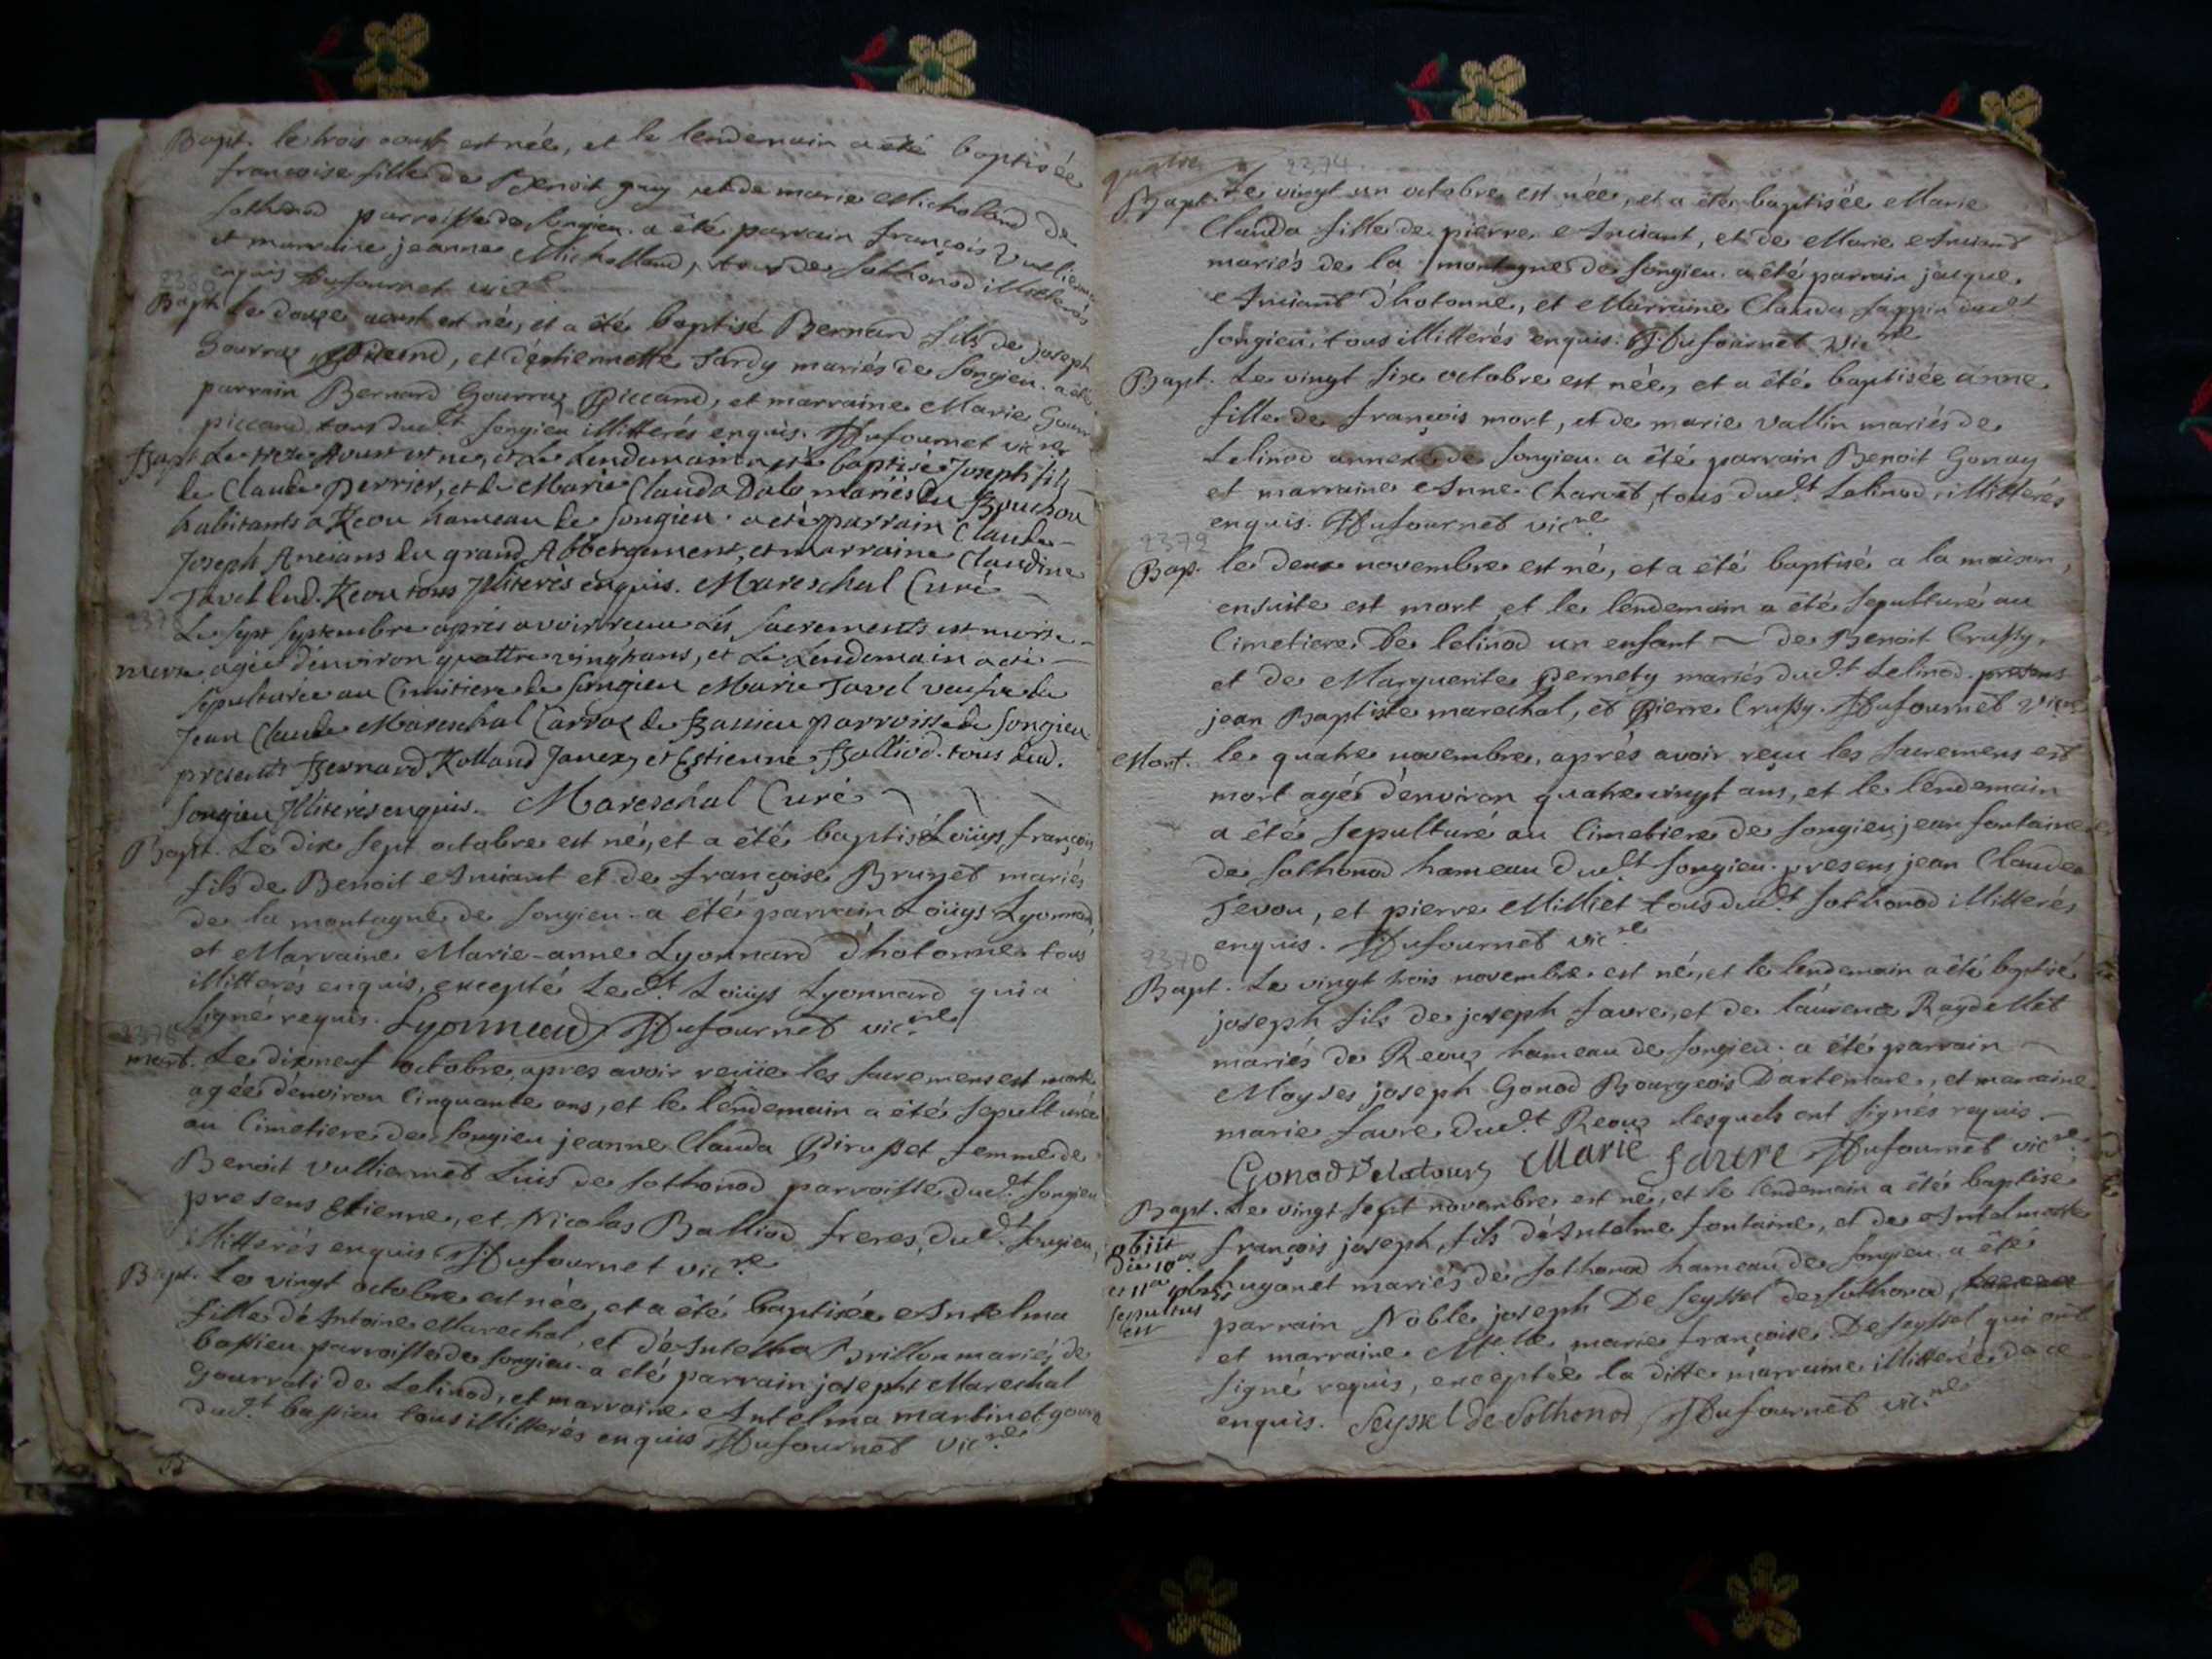 Bapt. le trois aoust est née, et le lendemain a été baptisée
francoise fille de Benoit guy et de marie Micholand de
sothonod parroisse de songieu. a été parrain françois Vullierme
et marraine jeanne Michalland, tous de sothonod illitterés
enquis Dufournet vic.re
Bapt. le douze aoust est né, et a été baptisé Bernard fils de joseph
Gourraz Piccand, et d'étiennette Tardy mariés de songieu. a été
parrain Bernard Gourraz Piccand, et marraine Marie Gourr
piccand, tous dud.t songieu illitterés enquis. Dufournet vic.re
Bapt. Le treze Aoust est né, et le Lendemain a été baptisé Joseph fils
de Claude Perrier, et de Marie Clauda Dalo mariés du Bouchou
habitants a Reou hameau de songieu. a été parrain Claude
Joseph Ancians du grand Abbergement, et marraine Claudine
Tavel dud. Reou tous Illiterés enquis. Mareschal Curé
Le sept septembre après avoir receu Les sacrements est morte
morte agée d'environ quattre vingt ans, et Le Lendemain a été
sepulturée au Cimitiere de songieu Marie Tavel veufve de
Jean Claude Mareschal Carraz de Bassieu parroisse de songieu
presents Bernard Rolland Janex, et Estienne Balliod. tous dud.
songieu Illiterés enquis. Mareschal Curé
Bapt. Le dix sept octobre est né, et a été baptisé Loüys françois
fils de Benoit Anciant et de françoise Brunet mariés
de la montagne de songieu. a été parrain Loüys Lyonnard,
et Marraine Marie-anne Lyonnard d'hotonne tous
illitterés enquis, excepté Led.t Loüys Lyonnard qui a
signé requis. Lyonnard Dufournet vic.re
2376
mort. Le dixneuf octobre apres avoir reçüe les sacremens est morte
agée denviron Cinquante ans, et le lendemain a été sepulturée
au Cimetiere de songieu jeanne Clauda Pirusset femme de
Benoit vulliermet Luis de sothonod parroisse dud.t songieu
presens Etienne, et Nicolas Balliod freres, dud.t songieu,
illitterés enquis Dufournet vic.re
Bapt. Le vingt octobre est née, et a été baptisée Antelma
fille d'Antoine Marechal, et d'Antelma Brillon mariés de
bassieu parroisse de songieu. a été parrain joseph Marechal
Gourrati de Lelinod, et marraine Antelma martinet gourra
dud.t bassieu tous illitterés enquis Dufournet vic.re
2374
Bapt. Le vingt un octobre est née, et a été baptisée Marie
Clauda fille de pierre Anciant, et de Marie Anciant
mariés de la montagne de songieu. a été parrain jacque
Anciant d'hotonne, et Marraine Clauda sappin dud.t
songieu, tous illitterés enquis. Dufournet vic.re
Bapt. Le vingt six octobre est née, et a été baptisée anne
fille de françois mort, et de marie vallin mariés de
Lelinod annexe de songieu. a été parrain Benoit Gonay
et marraine Anne Charvet, tous dud.t Lelinod, illitterés
enquis. Dufournet vic.re
2372
Bap. le deux novembre est né, et a été baptisé a la maison,
ensuite est mort et le lendemain a été sepulturé au
Cimetiere de lelinod un enfant ~ de Benoit Crussy,
et de Marguerite Pernety mariés dud.t Lelinod. presens
jean Baptiste marechal, et Pierre Crussy. Dufournet vic.re
Mort. le quatre novembre, après avoir reçu les sacremens est
mort agé d'environ quatre vingt ans, et le lendemain
a été sepulturé au Cimetiere de songieu, jean fontaine
de sothonod hameau dud.t songieu. presens jean Claude
Tevou, et pierre Milliet tous dud.t sothonod illitterés
enquis. Dufournet vic.re
2370
Bapt. Le vingt trois novembre est né, et le lendemain a été baptisé
joseph fils de joseph favre, et de laurence Raydellet
mariés de Reouz hameau de songieu. a été parrain
Moyses joseph Gonod Bourgeois Dartemare, et marraine
marie favre dud.t Reouz lesquels ont signés requis.
Gonod Delatour Marie favre Dufournet vic.re
Bapt. Le vingt sept novembre est né, et le lendemain a été baptisé
obiit françois joseph, fils d'Antelme fontaine, et de Antelmette
die 10a
et 11a Xbris hugonet mariés de sothonod hameau de songieu. a été
sepultus est parrain Noble joseph De seyssel de sothonod,
et marraine M.lle marie françoise De seyssel qui ont
signé requis, exceptée la ditte marraine illitterée de ce
enquis. Seyssel de Sothonod Dufournet vic.re